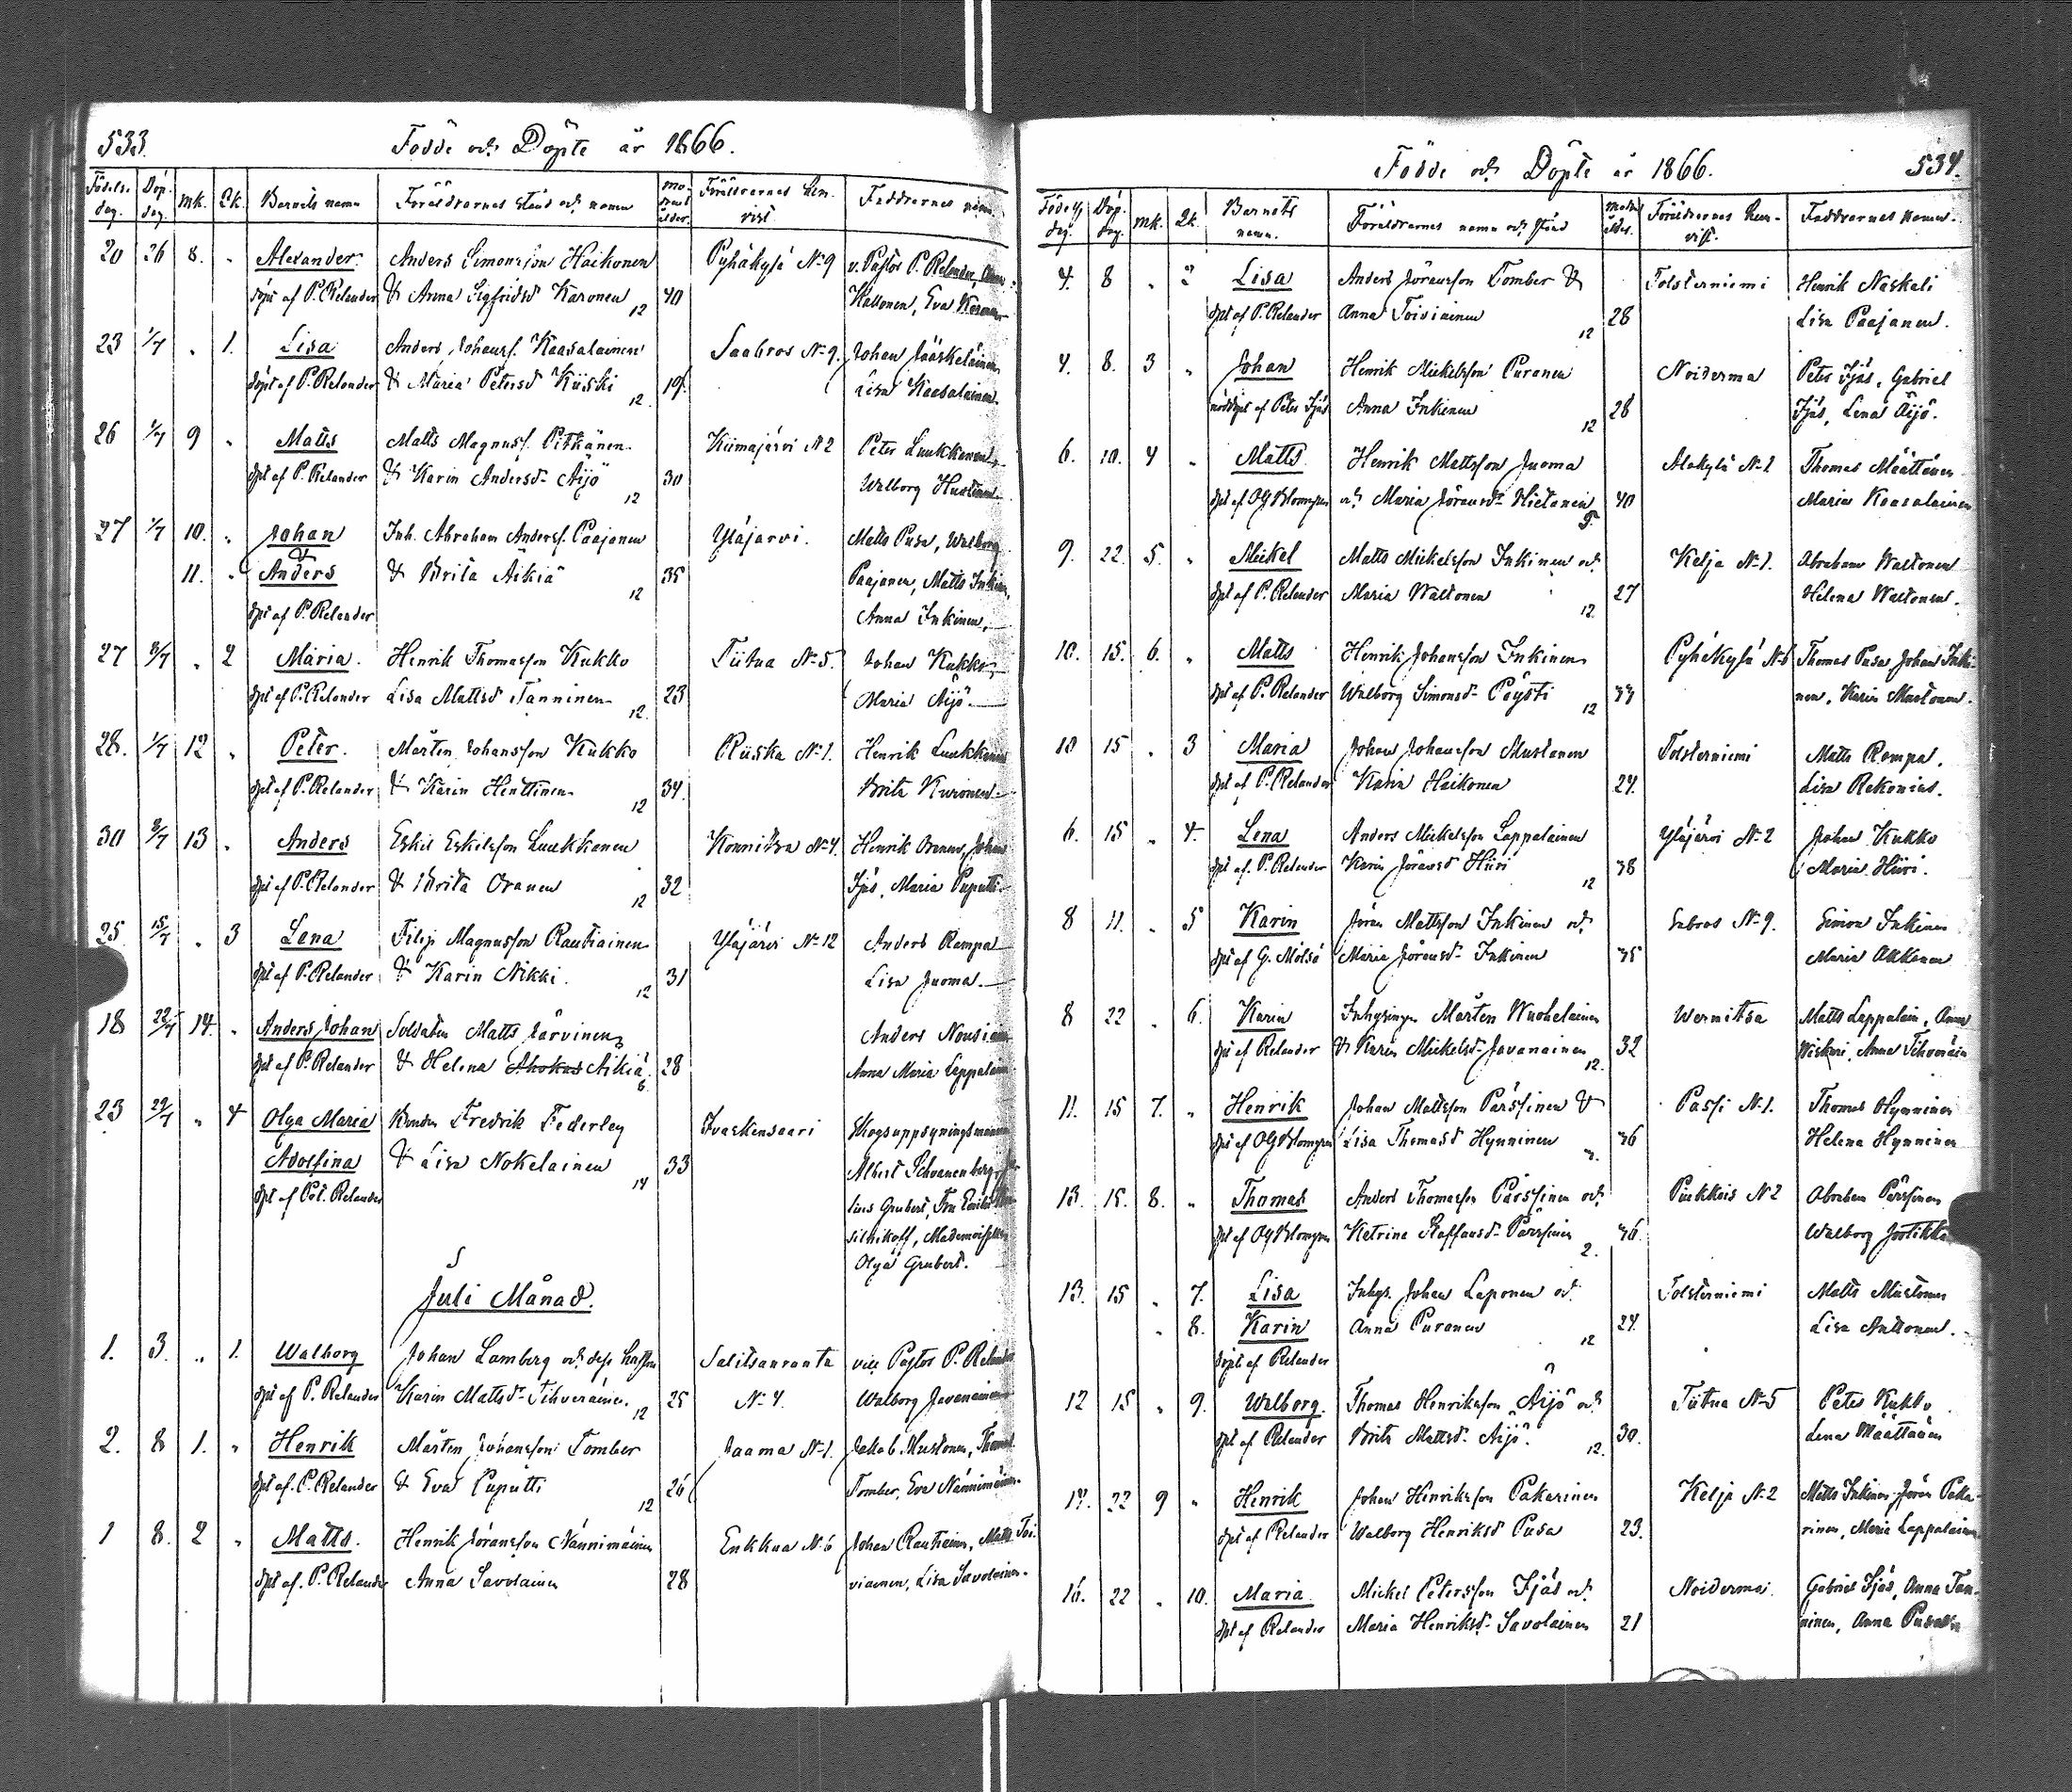 533. Födde och Döpte år 1866.
Födelse dag. Döp. dag. mk. Qk. Barnets namn Föräldrarnes stånd och namn Modrens ålder. Föräldrarnes hemvist. Faddrarnes namn.
20 26 8. " Alexander. Anders Simonsson Haikonen Pyhäkylä N:o 9 v. Pastor P. Relander,
döpt af P. Relander & Anna Sigfridsd. Karonen 12 40 Hallonen, Eva
23 1/7 " 1. Lisa Anders Johansf. Kaasalainen Saabros N:o 9. Johan Jääskeläinen
döpt af P. Relander & Maria Petersd. Kiiski 12. 19. Lisa Kaasalainen
26 1/7 9 " Matts Matts Magnusf. Pitkänen Kiimajärvi N:o 2 Peter Luukkonen
dpt af P. Relander & Karin Andersd:r Äijö 12 30 Walborg
27 1/7 10. " Johan Inh. Abraham Andersf. Paajanen Yläjärvi. Matts Pusa, Walborg
&
11. " Anders & Brita Äikiä 12 35 Paajanen, Matts Inkinen,
dpt af P. Relander Anna Inkinen,
27 8/7 " 2 Maria. Henrik Thomasson Kukko Tiitua N:o 5. Johan Kukko,
dpt af P. Relander Lisa Mattsd. Tanninen 12. 23 Maria Äijö.
28. 1/7 12 " Peter. Mårten Johansson Kukko Riiska N:o 1. Henrik Luukkonen
dpt af P. Relander & Karin Henttinen 12 34. Brita Kuronen
30 8/7 13 " Anders Eskil Eskilsson Luukkonen Konnitsa N:o 4. Henrik Oranen, Johan
dpt af P. Relander & Brita Oranen 12 32 Ijäs, Maria Puputti
25 15/7 " 3 Lena Filip Magnusson Rautiainen Yläjärvi N:o 12 Anders Rampa
dpt af P. Relander & Karin Nikki. 12 31 Lisa Juoma.
18 22/7 14. " Anders Johan Soldaten Matts Järvinen Anders Nousiainen
dpt af P. Relander & Helena Ahokas Äikiä 6. 28 Anna Maria Lappalainen
23 29/7 " 4 Olga Maria Bonden Fredrik Federley Ivaskensaari Skogsuppsyningsmannen
Adolfina & Lisa Nokelainen 14 33 Albert Schvanenberg,
dpt af Pst. Relander Grubert, Fru
Mademoiselle
Olga Grubert.
Juli Månad.
1. 3. " 1. Walborg Johan Lamberg och dess hustru Salitsanranta vice Pastor P. Relander
dpt af P. Relander Karin Mattsd:r Tihveräinen. 12 25 N:o 4. Walborg Javanainen
2. 8 1. " Henrik Mårten Johansson Tomber Jaama N:o 1. Jakob Mustonen, Thomas
dpt af. P. Relander & Eva Puputti 12 26 Tomber, Eva Nännimäinen.
1 8. 2 " Matts. Henrik Jöransson Nännimäinen Enkkua N:o 6 Johan Rautiainen, Matts Toi-
dpt af. P. Relander Anna Savolainen 28 viainen, Lisa Savolainen.
Födde och Döpte år 1866. 534.
Födelse dag. Döp. dag. mk. Qk. Barnets namn. Föräldrarnes namn och stånd Modrens ålder. Föräldrarnes hemvist. Faddrarnes namn.
4. 8 " 2 Lisa Anders Jöransson Tomber & Tolsterniemi Henrik Naskali
dpt af P. Relander Anna Toiviainen 12 28 Lisa Paajanen.
4. 8. 3 " Johan Henrik Mickelsson Puranen Noiderma Peter Ijäs, Gabriel
nöddöpt af Peter Ijäs Anna Inkinen 12 28 Ijäs, Lena Äijö.
6. 10. 4 " Matts Henrik Mattsson Juoma Alakylä N:o 1 Thomas Määttänen
dpt af OG Blomgren och Maria Jöransd:r Hietanen 40 Maria Kaasalainen
9. 22. 5. " Mickel Matts Mickelsson Inkinen och Kelja N:o 1. Abraham Waltonen
dpt af P. Relander Maria Waltonen 12. 27 Helena Waltonen.
10. 15. 6. " Matts Henrik Johansson Inkinen Pyhäkylä N:o 6 Thomas Pusa Johan Inki-
dpt af P. Relander Walborg Simonsd:r Pöysti 12 33 nen, Karin Mustonen.
10 15 " 3 Maria Johan Johansson Mustonen Tolsterniemi Matts Rampa.
dpt af P. Relander Karin Haikonen 24. Lisa Rekonius.
6. 15 " 4. Lena Anders Mickelsson Lappalainen Yläjärvi N:o 2 Johan Kukko
dpt af. P. Relander Karin Jöransd Hiiri 12 38 Maria Hiiri.
8 11. " 5 Karin Jöran Mattsson Inkinen och Sabros N:o 9. Simon Inkinen
dpt af G. Molsö Maria Jöransd:r Inkinen 35 Maria Akkanen
8 22 " 6. Karin Inhysingen Mårten Wuohelainen Wernitsa Matts Lappalain, Anna
dpt af Relander & Karin Mickelsd:r Javanainen 12. 32 Wiskari, Anna Tihveräin
11. 15 7. " Henrik Johan Mattsson Pärssinen & Passi N:o 1. Thomas Hynninen
dpt af OG Blomgren Lisa Thomasd Hynninen 2. 36 Helena Hynninen
13. 15. 8. " Thomas Anders Thomasson Pärssinen och Piekkeis N:o 2 Abraham Pärssinen
dpt af OG Blomgren Katrina Staffansd:r Pärssinen 2. 36. Walborg
13. 15 " 7. Lisa Inhys. Johan Laponen och Tolsterniemi Matts Mustonen
" 8. Karin Anna Puranen 12 24. Lisa Anttonen.
döpt af Relander
12 15 " 9. Walborg. Thomas Henriksson Äijö och Tiitua N:o 5 Peter Kukko
dpt af Relander Brita Mattsd. Äijö. 12. 30. Lena Määttänen
22 9 " Henrik Johan Henriksson Pakarinen Kelja N:o 2 Matts Inkinen Jöran Paka-
dpt af Relander Walborg Henriksd Pusa 23. rinen, Maria Lappalainen
16. 22 " 10. Maria Mickel Petersson Ijäs och Noiderma. Gabriel Ijäs, Anna Tan-
dpt af Relander Maria Henriksd:r Savolainen 21 ninen, Anna